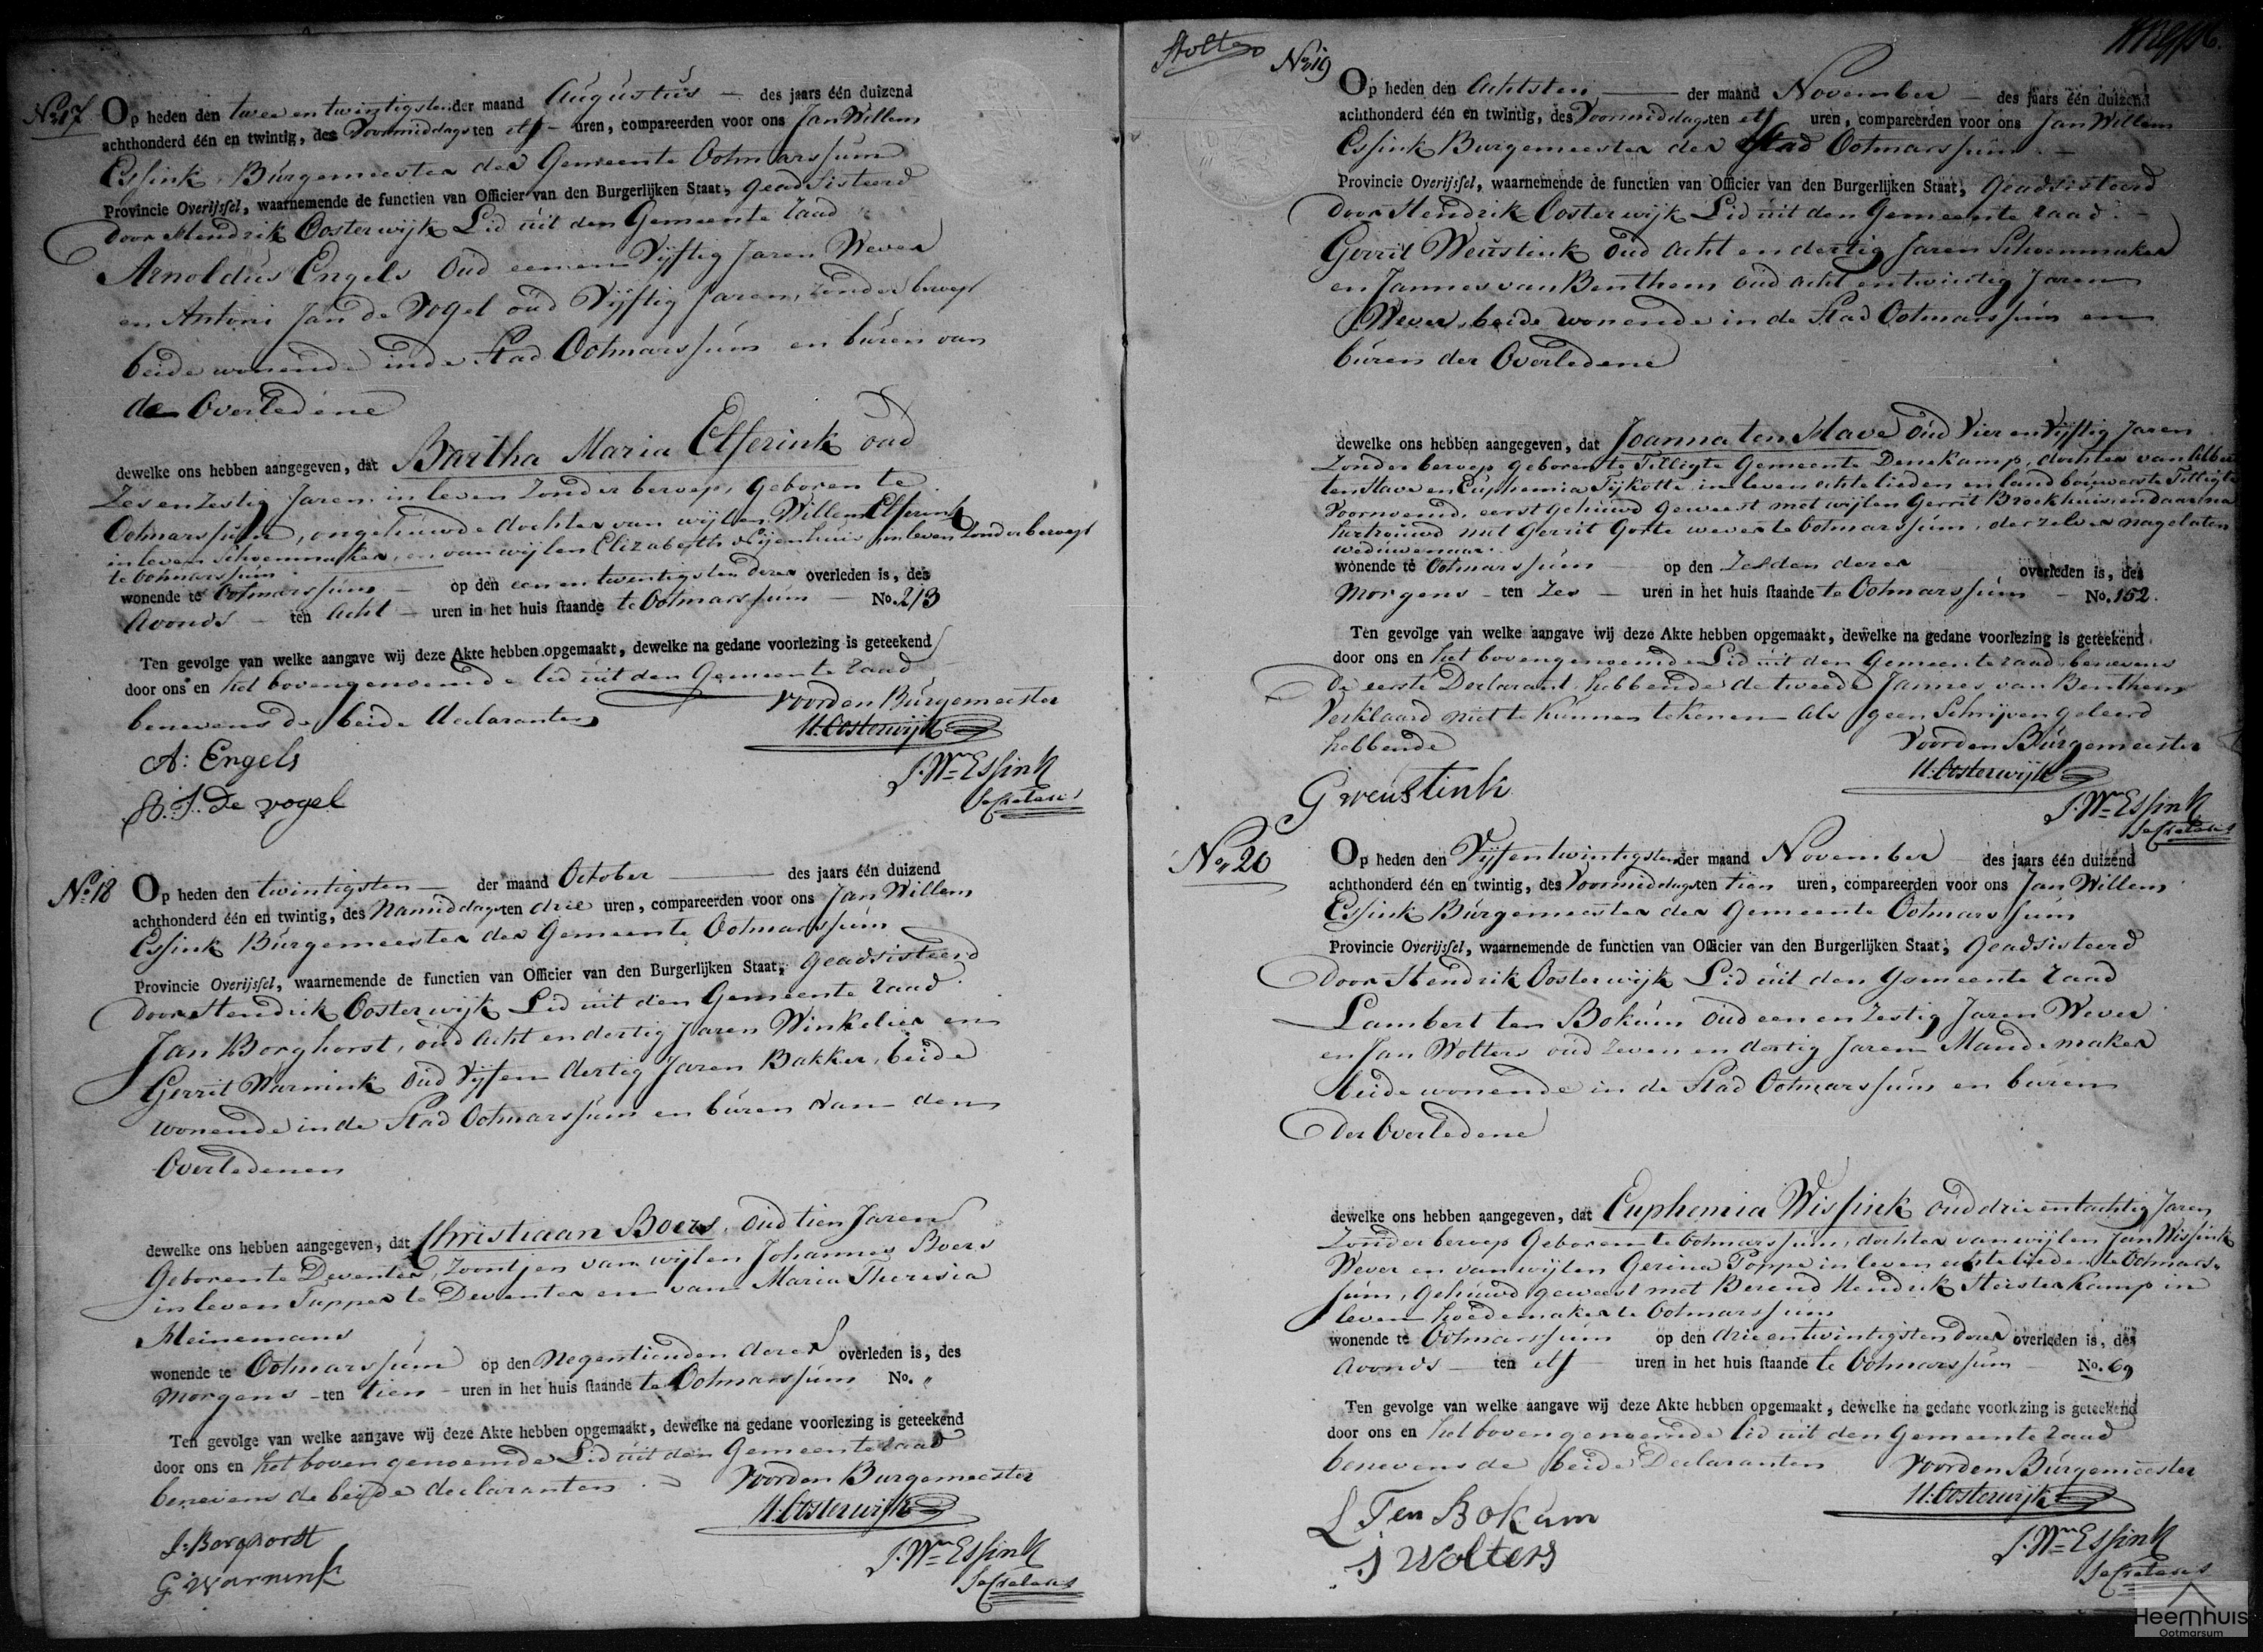 No. 17
Op heden den twee en twintigsten der maand Augustus — des jaars één duizend
achthonderd één en twintig, des Voormiddags ten elf — uren, compareerden voor ons Jan Willem
Essink, Burgemeester der Gemeente Ootmarssum
Provincie Overijssel, waarnemende de functien van Officier van den Burgerlijken Staat, geadsisteerd
door Hendrik Oosterwijk Lid uit den Gemeente raad
Arnoldus Engels Oud een en Vijftig Jaren Wever
en Antoni Jan de Vogel oud Vijftig Jaren, zonder beroep
beide wonende in de Stad Ootmarssum en buren van
de Overledene
dewelke ons hebben aangegeven, dat Bartha Maria Elferink oud
Zes en Zestig Jaren in leven Zonder beroep, geboren te
Ootmarssum, ongehuwde dochter van wijlen Willem Elferink
in leven Schoenmaker, en van wijlen Elizabeth Nijenhuis in leven Zonder beroep
te Ootmarssum
wonende te Ootmarssum — op den een en twentigsten dezer overleden is, des
Avonds — ten Acht — uren in het huis staande te Ootmarssum — No. 213
Ten gevolge van welke aangave wij deze Akte hebben opgemaakt, dewelke na gedane voorlezing is geteekend
door ons en het bovengenoemde lid uit den Gemeente raad
benevens de beide declaranten
Voor den Burgemeester
H: Oosterwijk
A: Engels
J. Wm Essink
Secretaris
A. J. De vogel
No. 18
Op heden den twintigsten — der maand October — des jaars één duizend
achthonderd één en twintig, des Namiddags ten drie uren, compareerden voor ons Jan Willem
Essink Burgemeester der Gemeente Ootmarssum
Provincie Overijssel, waarnemende de functien van Officier van den Burgerlijken Staat, geadsisteerd
door Hendrik Oosterwijk Lid uit den Gemeente raad
Jan Borghorst, oud Acht en dertig Jaren Winkelier en
Gerrit Warnink Oud Vijf en dertig Jaren Bakker, beide
wonende in de Stad Ootmarssum en buren van den
Overledenen
dewelke ons hebben aangegeven, dat Christiaan Boers, oud tien Jaren
Geboren te Deventer, Zoontjen van wijlen Johannes Boers
in leven Tapper te Deventer en van Maria Theresia
Heinemans
wonende te Ootmarssum op den Negentienden dezer overleden is, des
Morgens — ten tien — uren in het huis staande te Ootmarssum No. "
Ten gevolge van welke aangave wij deze Akte hebben opgemaakt, dewelke na gedane voorlezing is geteekend
door ons en het boven genoemde Lid uit den Gemeente raad
benevens de beide declaranten.
Voor den Burgemeester
H: Oosterwijk
J: Borghorst
J. Wm Essink
Secretaris
G Warnink
Stolte
No. 19
Op heden den Achtsten — der maand November — des jaars één duizend
achthonderd één en twintig, des Voormiddags ten elf uren, compareerden voor ons Jan Willem
Essink Burgemeester der Stad Ootmarssum —
Provincie Overijssel, waarnemende de functien van Officier van den Burgerlijken Staat, Geadsisteerd
door Hendrik Oosterwijk Lid uit den Gemeente raad. —
Gerrit Weustink Oud Acht en dertig Jaren Schoenmaker
en Jannes van Benthem oud acht en twintig Jaren
Wever, beide wonende in de Stad Ootmarssum en
buren der Overledene
dewelke ons hebben aangegeven, dat Joanna ten Have Oud Vier en Vijftig Jaren
Zonder beroep geboren te Tilligte Gemeente Denekamp, dochter van Albert
ten Have en Euphemia Tijkotte in leven achtelieden en landbouwers te Tilligte
Voornoemd, eerst gehuwd geweest met wijlen Gerrit Broekhuis en daarna
hertrouwd met Gerrit Gorte wever te Ootmarssum, derzelver nagelaten
weduwenaar.
wonende te Ootmarssum — op den Zesden dezer overleden is, des
Morgens — ten Zes — uren in het huis staande te Ootmarssum — No. 152.
Ten gevolge van welke aangave wij deze Akte hebben opgemaakt, dewelke na gedane voorlezing is geteekend
door ons en het bovengenoemde Lid uit den Gemeente raad, benevens
de eerste Declarant hebbende de tweede Jannes van Benthem
Verklaard niet te kunnen tekenen als geen Schrijven geleerd
hebbende
Voor den Burgemeester
H: Oosterwijk
G weustink
J. Wm Essink
Secretaris
No. 20
Op heden den Vijf en twintigsten der maand November — des jaars één duizend
achthonderd één en twintig, des Voormiddags ten tien uren, compareerden voor ons Jan Willem
Essink Burgemeester der Gemeente Ootmarssum
Provincie Overijssel, waarnemende de functien van Officier van den Burgerlijken Staat, Geadsisteerd
door Hendrik Oosterwijk Lid uit den Gemeente raad
Lambert ten Bokum Oud een en Zestig Jaren Wever
en Jan Wolters oud Zeven en dertig Jaren Mandemaker
beide wonende in de Stad Ootmarssum en buren
der Overledene
dewelke ons hebben aangegeven, dat Euphemia Wissink oud drie en tachtig Jaren
Zonder beroep Geboren te Ootmarssum, dochter van wijlen Jan Wissink
Wever en van wijlen Gerina Poppe in leven echtelieden te Ootmars-
sum, Gehuwd geweest met Berend Hendrik Heisterkamp in
leven hoedemaker te Ootmarssum
wonende te Ootmarssum op den drie en twintigsten dezer overleden is, des
Avonds — ten elf — uren in het huis staande te Ootmarssum — No. 69
Ten gevolge van welke aangave wij deze Akte hebben opgemaakt, dewelke na gedane voorlezing is geteekend
door ons en het boven genoemde lid uit den Gemeente raad
benevens de beide Declaranten
Voor den Burgemeester
H: Oosterwijk
L Ten Bokum
J. Wm Essink
Secretaris
J Wolters
Heemhuis
Ootmarsum